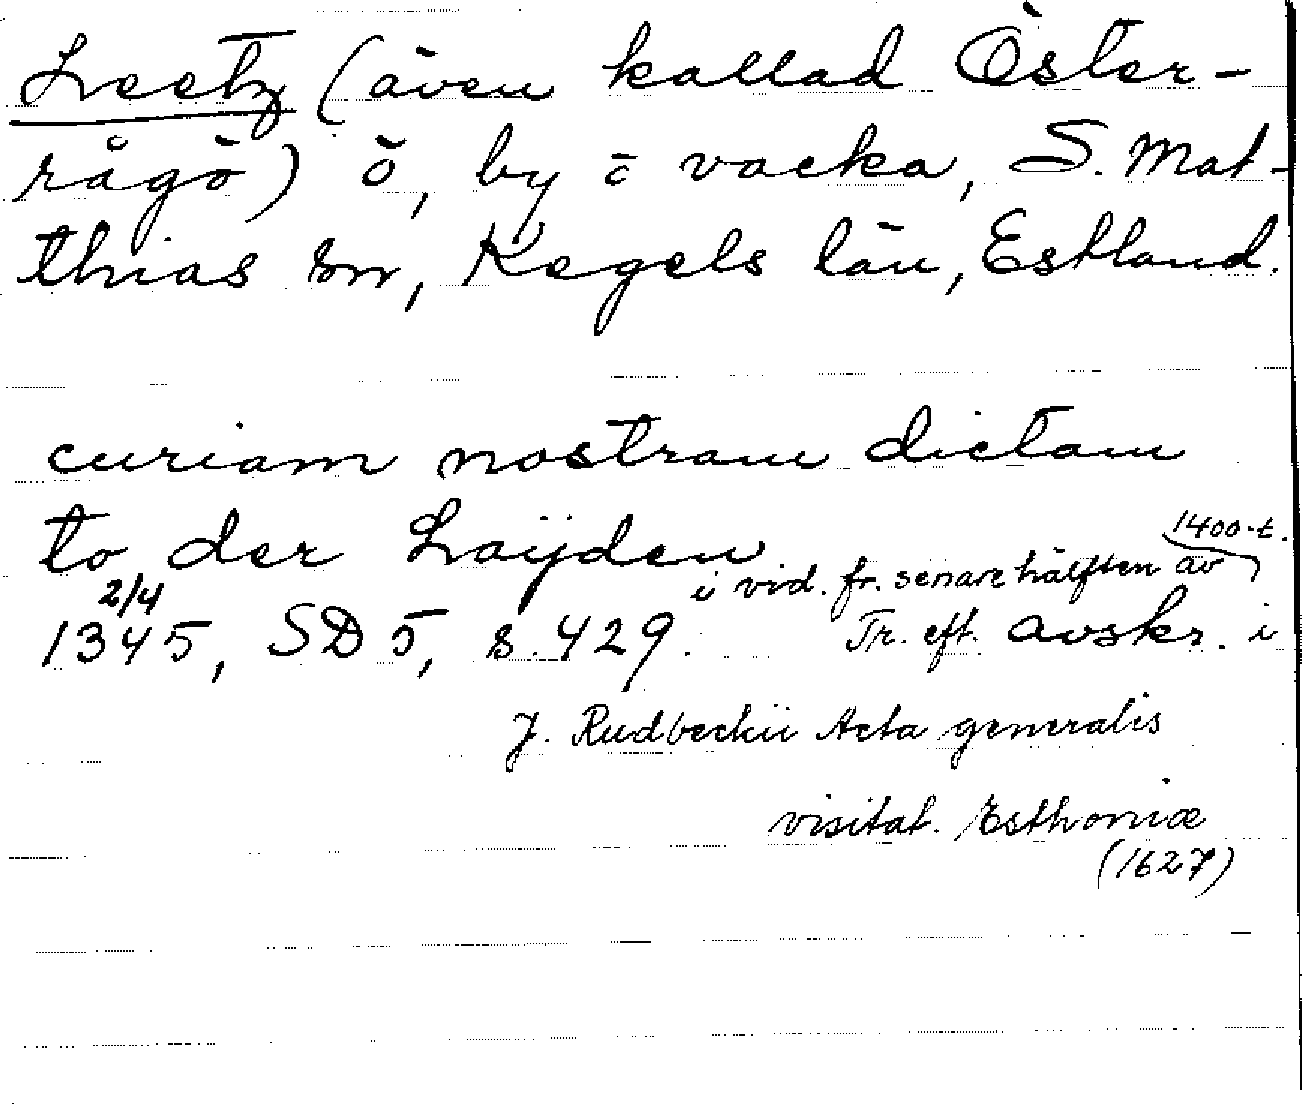 Leetz (även kallad Öster-
rågö) ö, by o vacka, S. Mat-
thias sn, Kegels län, Estland.
curiam nostram dictam
to der Laÿden
i vid. fr. senare hälften av 1400-t.
2/4
1345, SD 5, s. 429. Tr. eft. avskr. i
J. Rudbeckii Acta generalis
visitat. Esthoniæ
(1627)